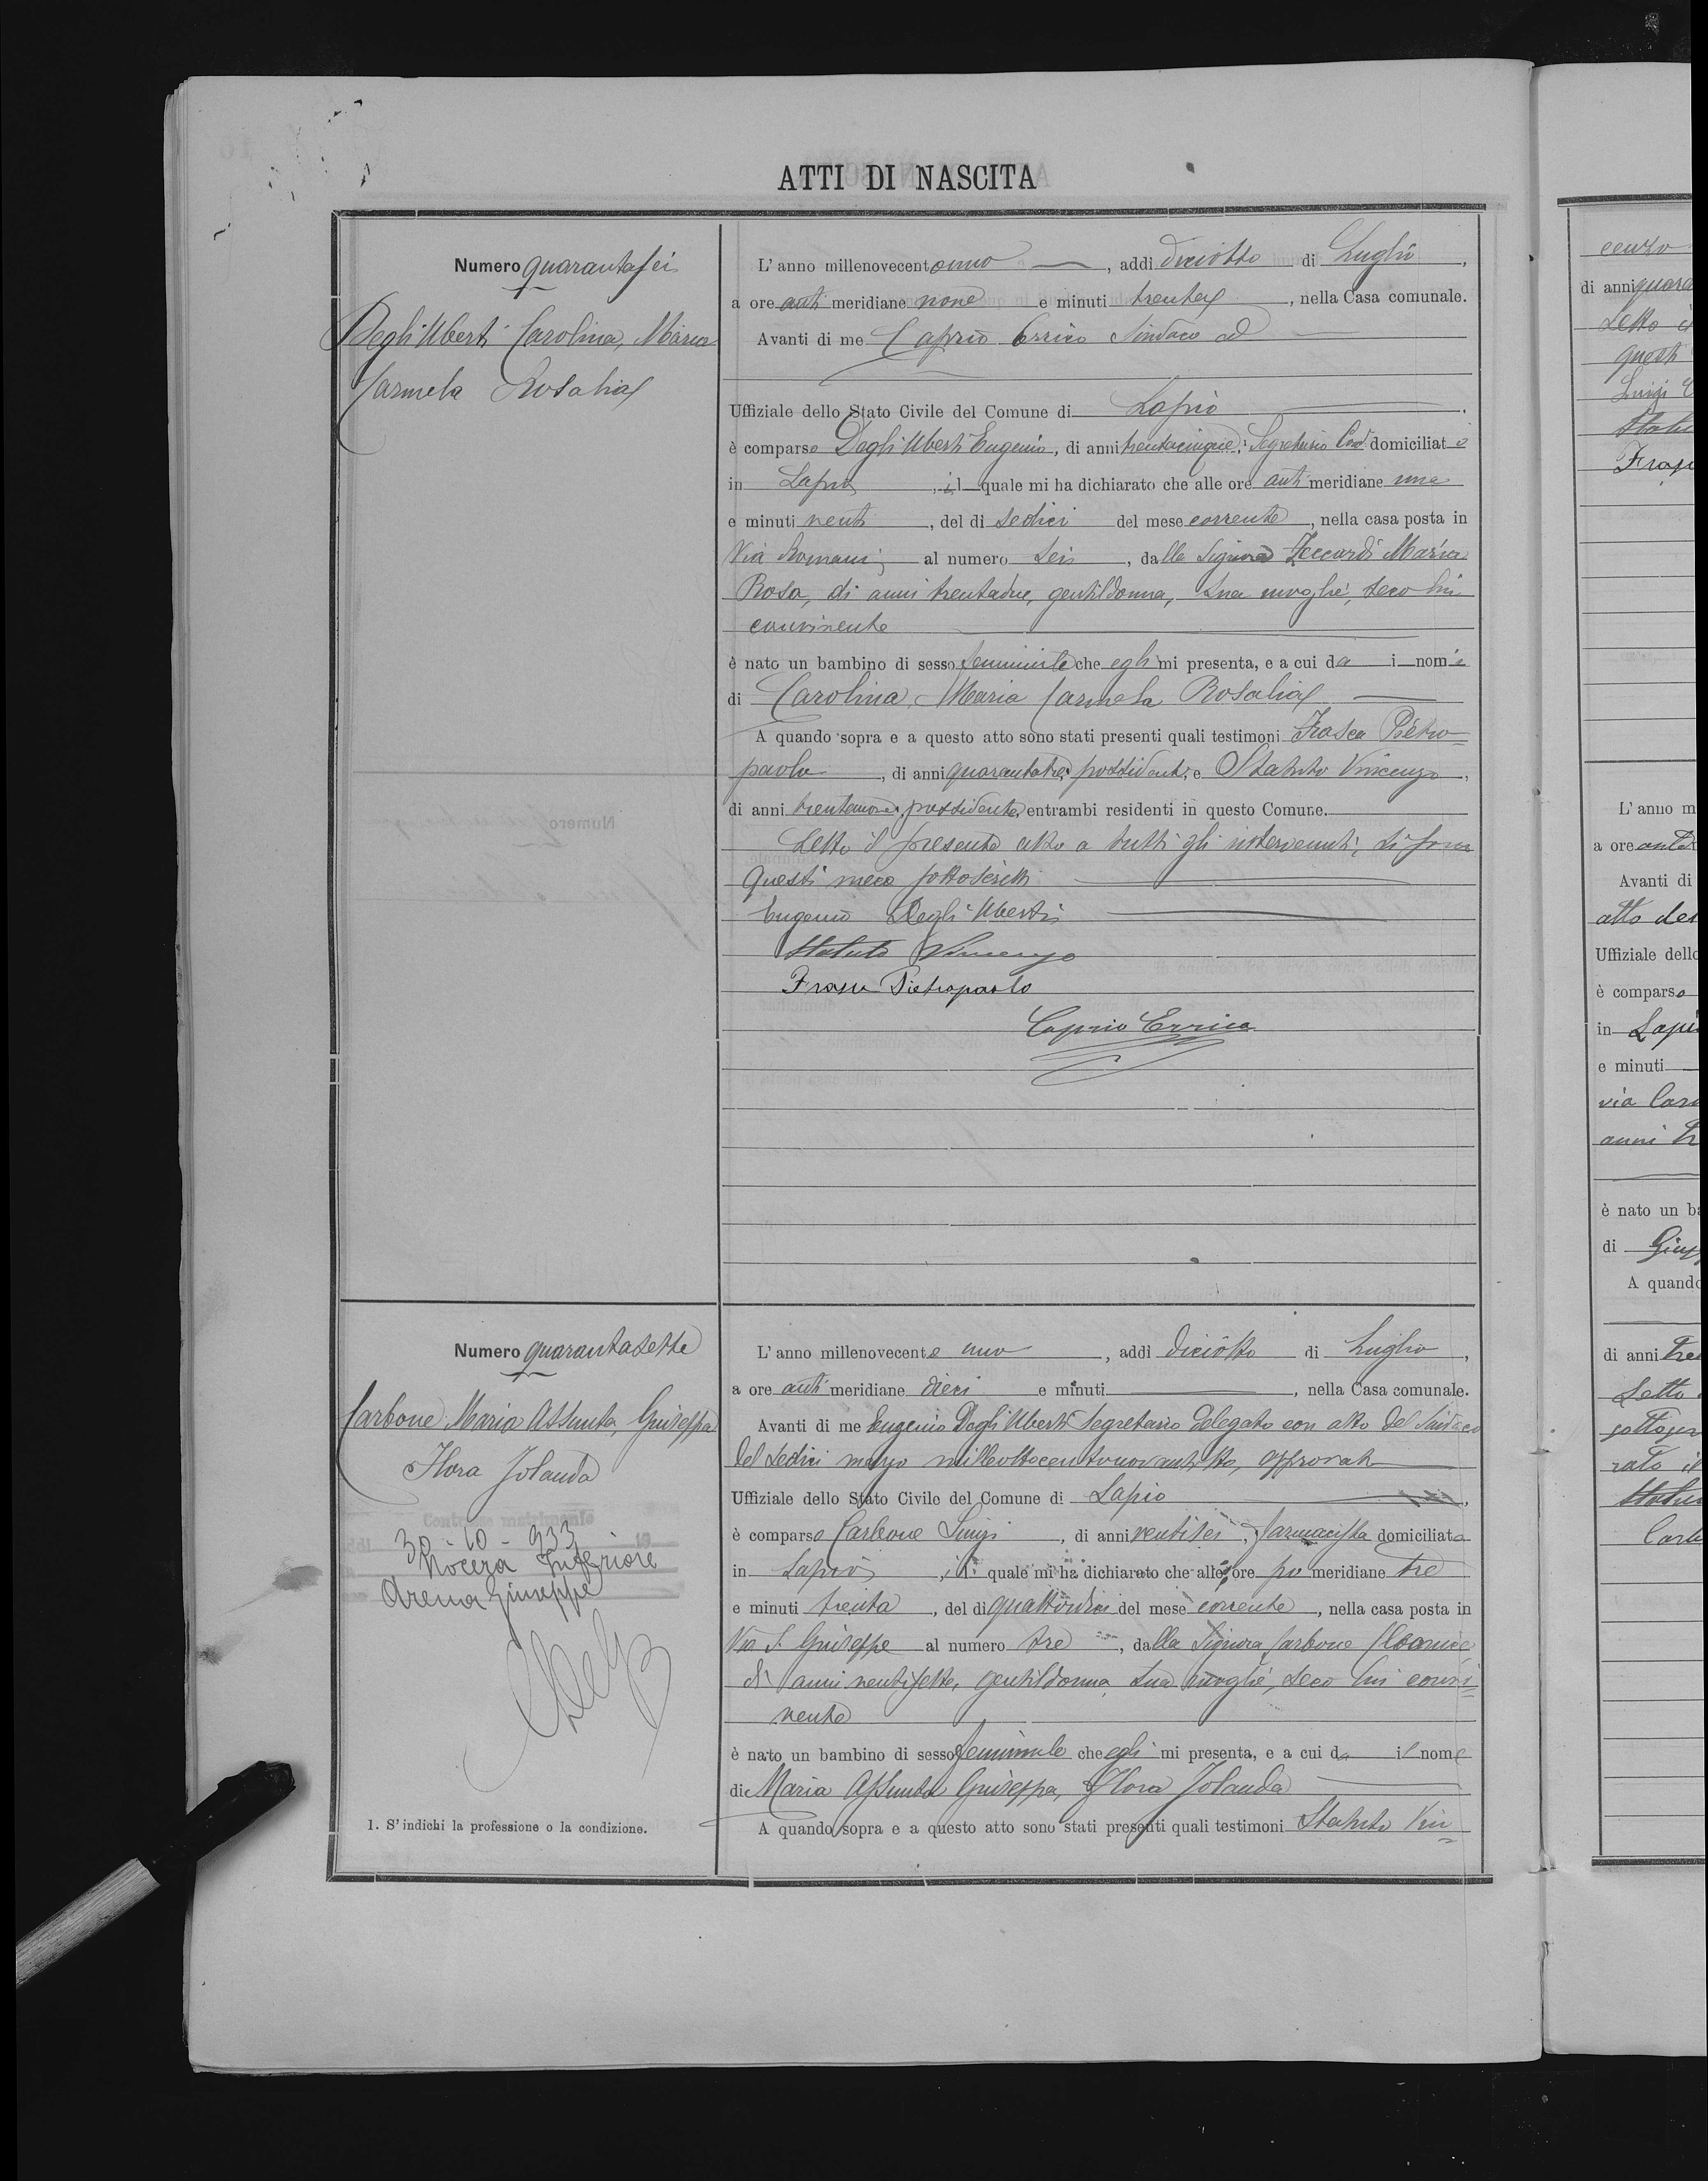 ATTI DI NASCITA
Numero quarantasei
Degli Uberti Carolina, Maria
Carmela Rosalia
L'anno millenovecentouno, addì diciotto di Luglio,
a ore anti meridiane nove e minuti trenta, nella Casa comunale.
Avanti di me Caprio Errico Sindaco ed
Uffiziale dello Stato Civile del Comune di Lapio.
è comparso Degli Uberti Eugenio, di anni trentacinque, Segretario Com. domiciliato
in Lapio, il quale mi ha dichiarato che alle ore anti meridiane una
e minuti venti, del dì sedici del mese corrente, nella casa posta in
Via Romani al numero sei, dalla Signora Zeccardi Maria
Rosa, di anni trentadue, gentildonna, sua moglie, seco lui
convivente
è nato un bambino di sesso femminile che egli mi presenta, e a cui da i nomi
di Carolina, Maria Carmela Rosalia
A quando sopra e a questo atto sono stati presenti quali testimoni Frasca Pietro=
paolo, di anni quarantatre, possidente, e Statuto Vincenzo,
di anni trentanove, possidente, entrambi residenti in questo Comune.
Letto il presente atto a tutti gli intervenuti, si sono
questi meco sottoscritti
Eugenio Degli Uberti
Statuto Vincenzo
Frasca Pietropaolo
Caprio Errico
Numero quarantasette
Carbone Maria Assunta, Giuseppa
Flora Jolanda
30-10-933
Nocera Inferiore
Arena Giuseppe
L'anno millenovecento uno, addì diciotto di Luglio,
a ore anti meridiane dieci e minuti, nella Casa comunale.
Avanti di me Eugenio Degli Uberti Segretario Delegato con atto del Sindaco
del sedici marzo milleottocentonovantotto, approvato
Uffiziale dello Stato Civile del Comune di Lapio,
è comparso Carbone Luigi, di anni ventisei, farmacista domiciliato
in Lapio, il quale mi ha dichiarato che alle ore po meridiane tre
e minuti trenta, del dì quattordici del mese corrente, nella casa posta in
Via S. Giuseppe al numero tre, dalla Signora Carbone
di anni ventisette, gentildonna sua moglie, seco lui convi=
vente
è nato un bambino di sesso femminile che egli mi presenta, e a cui da il nome
di Maria Assunta Giuseppa, Flora Jolanda
A quando sopra e a questo atto sono stati presenti quali testimoni Statuto Vin=
1. S'indichi la professione o la condizione.
cenzo
di anni quara
Letto i
questi
Luigi C
Statu
Frasc
L'anno m
a ore anti
Avanti di
atto del
Uffiziale dello
è comparso
in Lapi
e minuti
via Car
anni tr
è nato un ba
di Giu
A quando
di anni tre
Letto
sottos
rato il
Statu
Carb